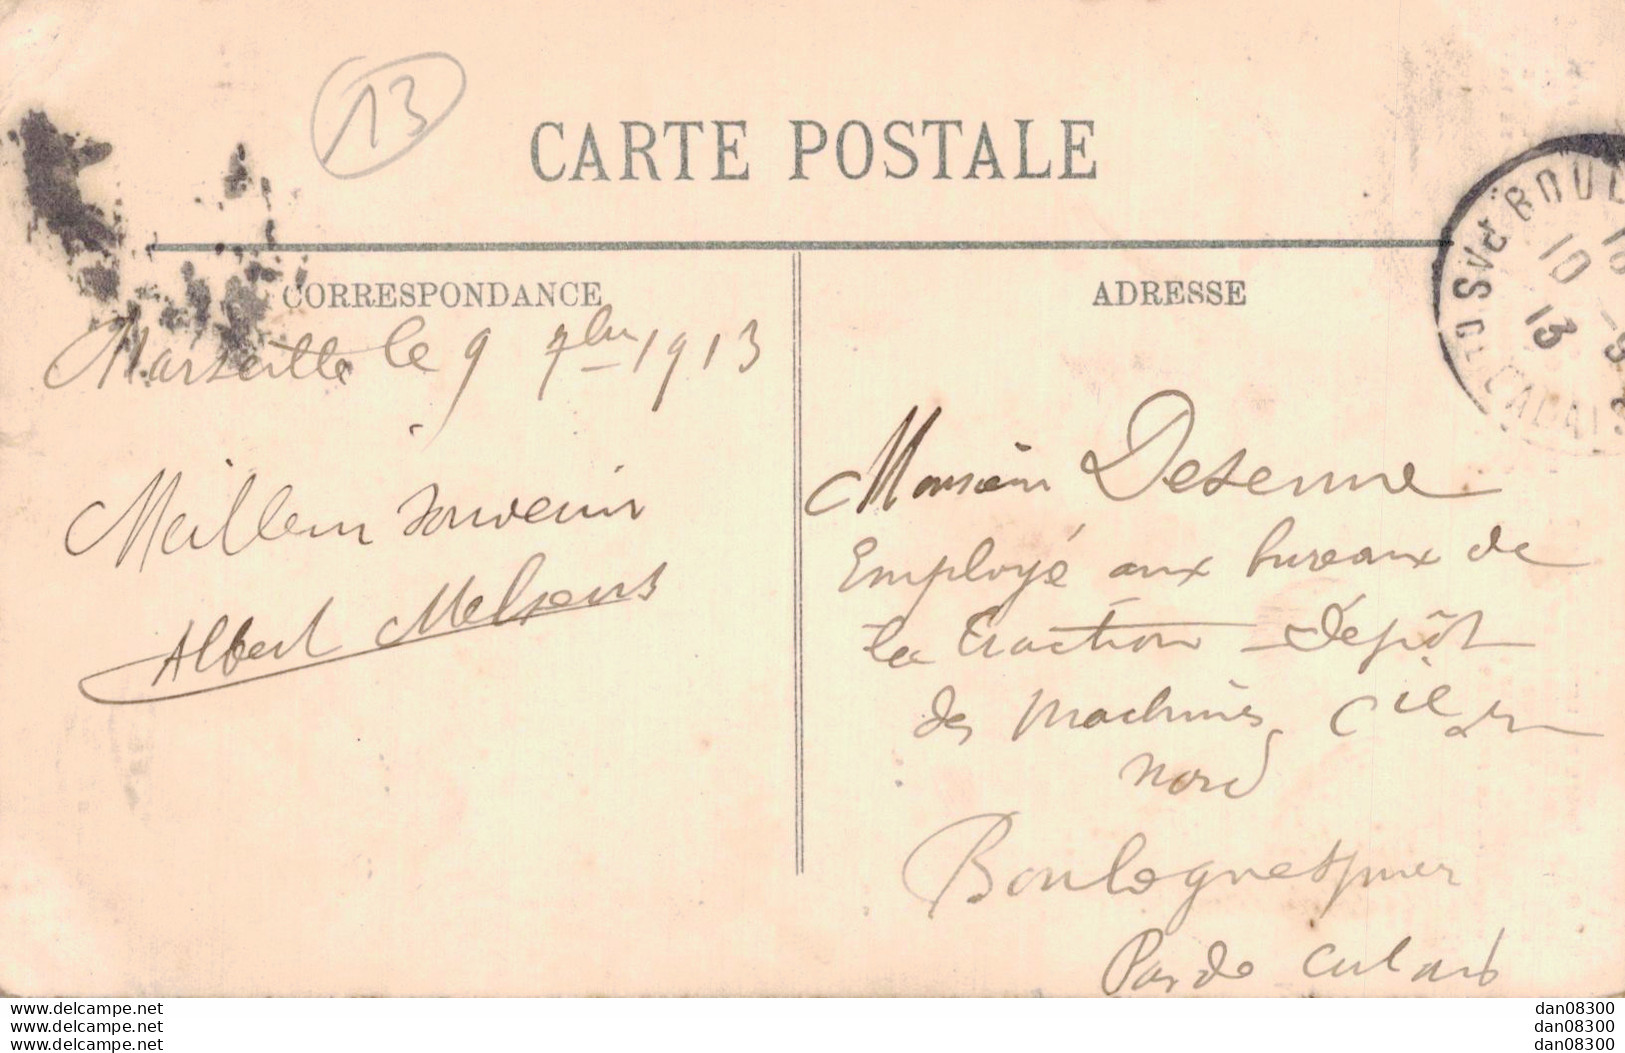 13
CARTE POSTALE
CORRESPONDANCE
Marseille le 9 7bre 1913
Meilleur souvenir
Albert Melsens
ADRESSE
Monsieur Desenne
Employé aux bureaux de
la Traction Dépôt
des Machines Cie du
Nord
Boulogne s/mer
Pas de Calais
BOUL
10
13
CALAIS
www.delcampe.net
www.delcampe.net
www.delcampe.net
dan08300
dan08300
dan08300